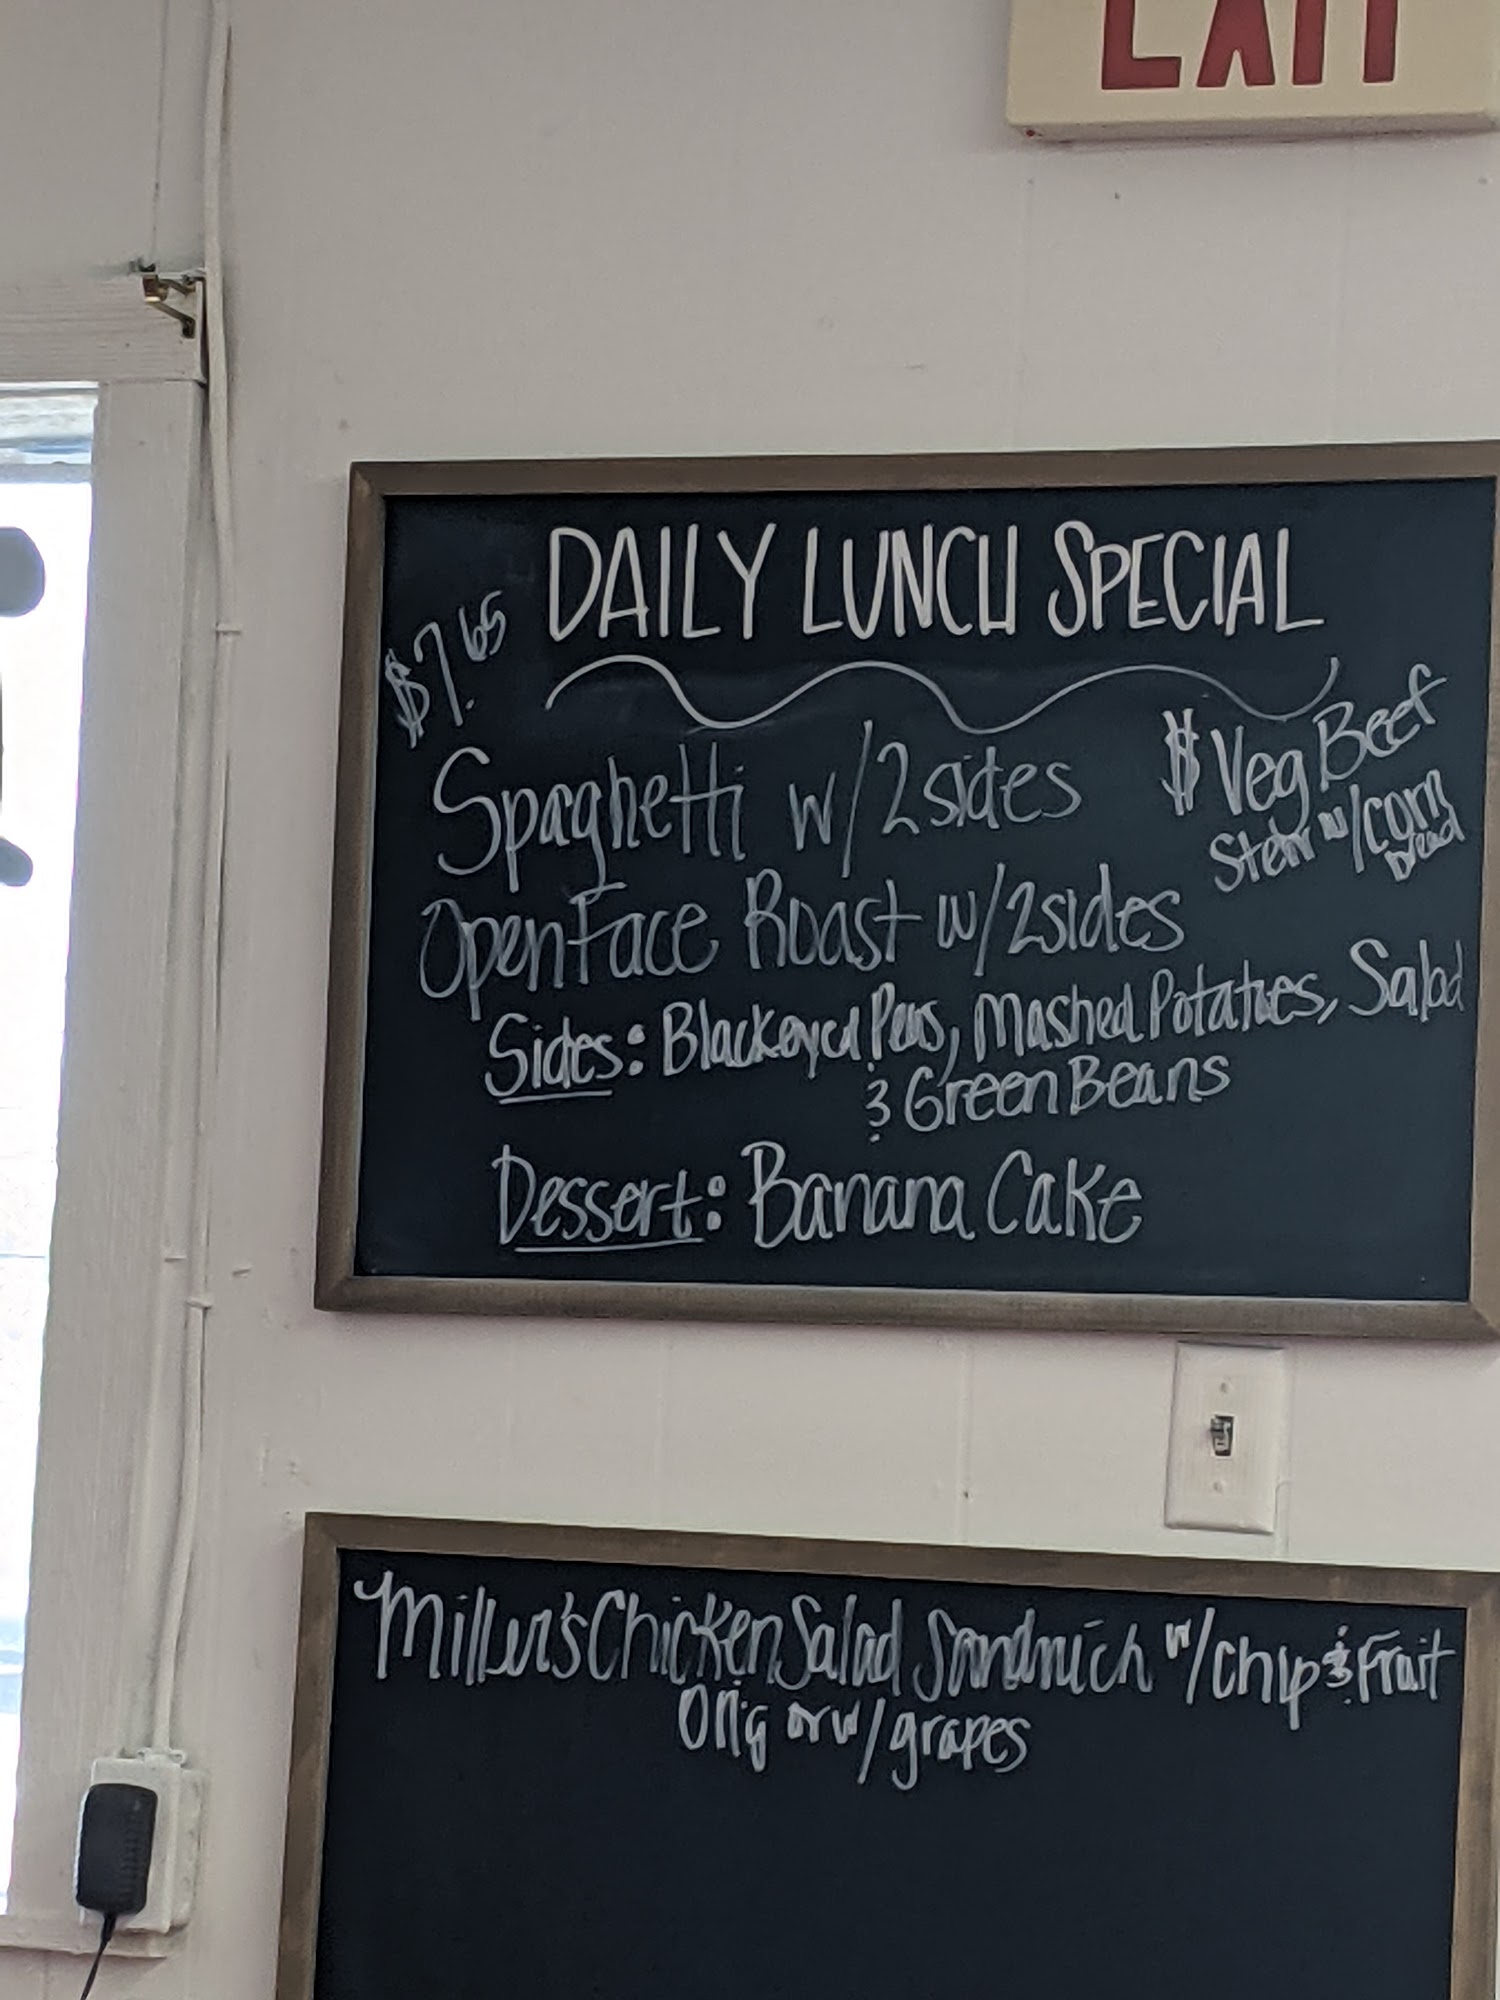 EXIT
DAILY LUNCH SPECIAL
$7.65
Spaghetti w/2sides
$ Veg Beef
Stew w/corn
bread
OpenFace Roast w/2sides
Sides: Blackeyed Peas, Mashed Potatoes, Salad
& Green Beans
Dessert: Banana Cake
Miller's Chicken Salad Sandwich w/chip & Fruit
Orig or w/grapes